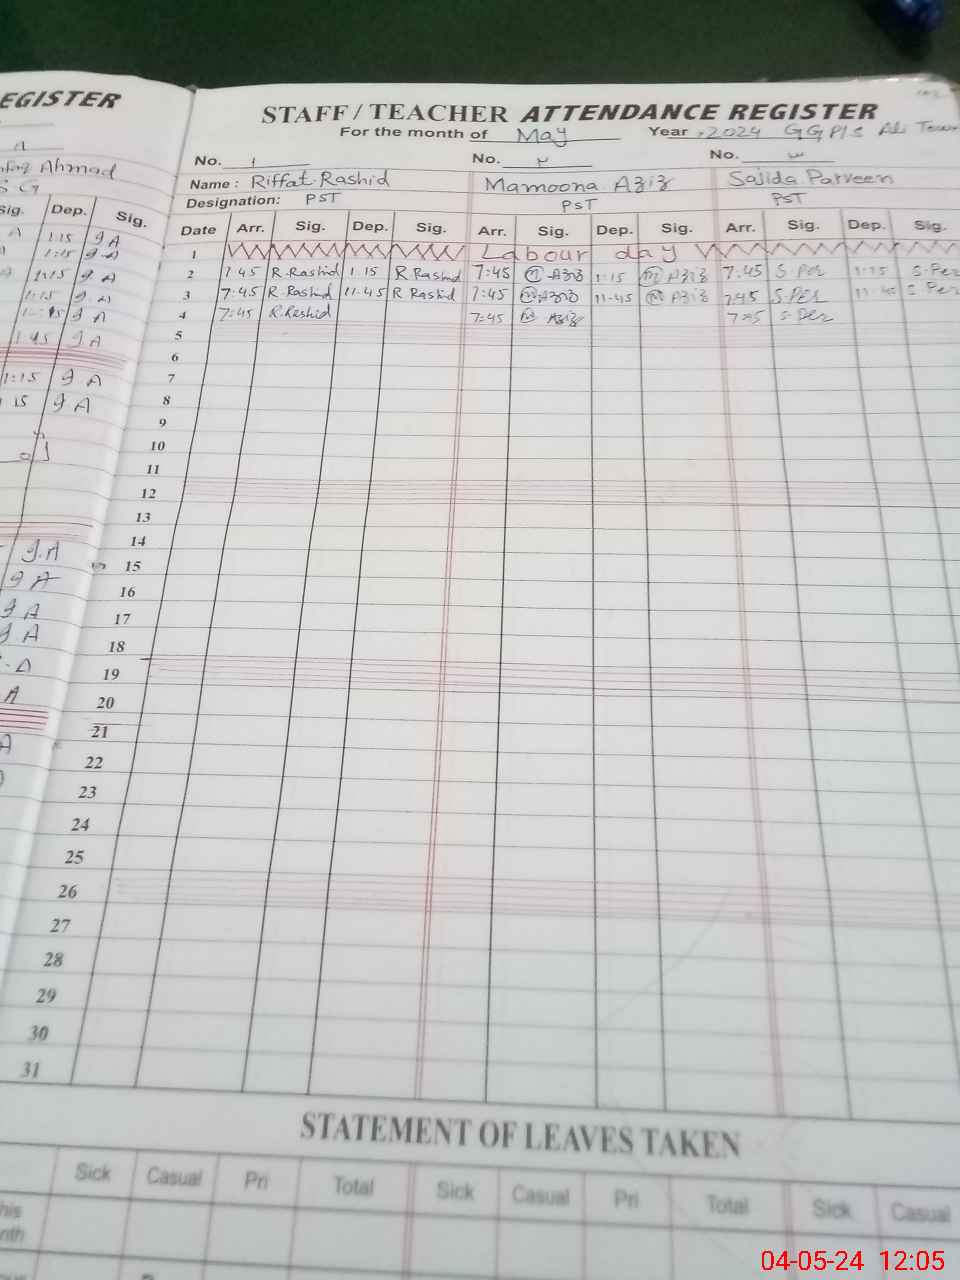 EGISTER
STAFF / TEACHER ATTENDANCE REGISTER
For the month of May Year 2024 GGP/S Ali Town
No. ١ No. ٢ No. ٣
Ahmad
Name : Riffat Rashid Mamoona Aziz Sajida Parveen
Designation: PST PST PST
Sig. Dep. Sig.
Date Arr. Sig. Dep. Sig. Arr. Sig. Dep. Sig. Arr. Sig. Dep. Sig.
1 Labour day
2 7:45 R.Rashid 1:15 R.Rashid 7:45 M Aziz 1:15 M Aziz 7:45 S.Per 1:15 S.Per
3 7:45 R.Rashid 11:45 R Rashid 7:45 M Aziz 11:45 M Aziz 7:45 S.Per 11:45 S.Per
4 7:45 R.Rashid 7:45 M Aziz 7:45 S.Per
5
6
7
8
9
10
11
12
13
14
15
16
17
18
19
20
21
22
23
24
25
26
27
28
29
30
31
1:15 g A
1:15 g A
1:15 g A
1:15 g A
g A
1:45 g A
1:15 g A
15 g A
g.A
g A
g A
g.A
A
A
A
STATEMENT OF LEAVES TAKEN
Sick Casual Pri Total Sick Casual Pri Total Sick Casual
his
nth
04-05-24 12:05